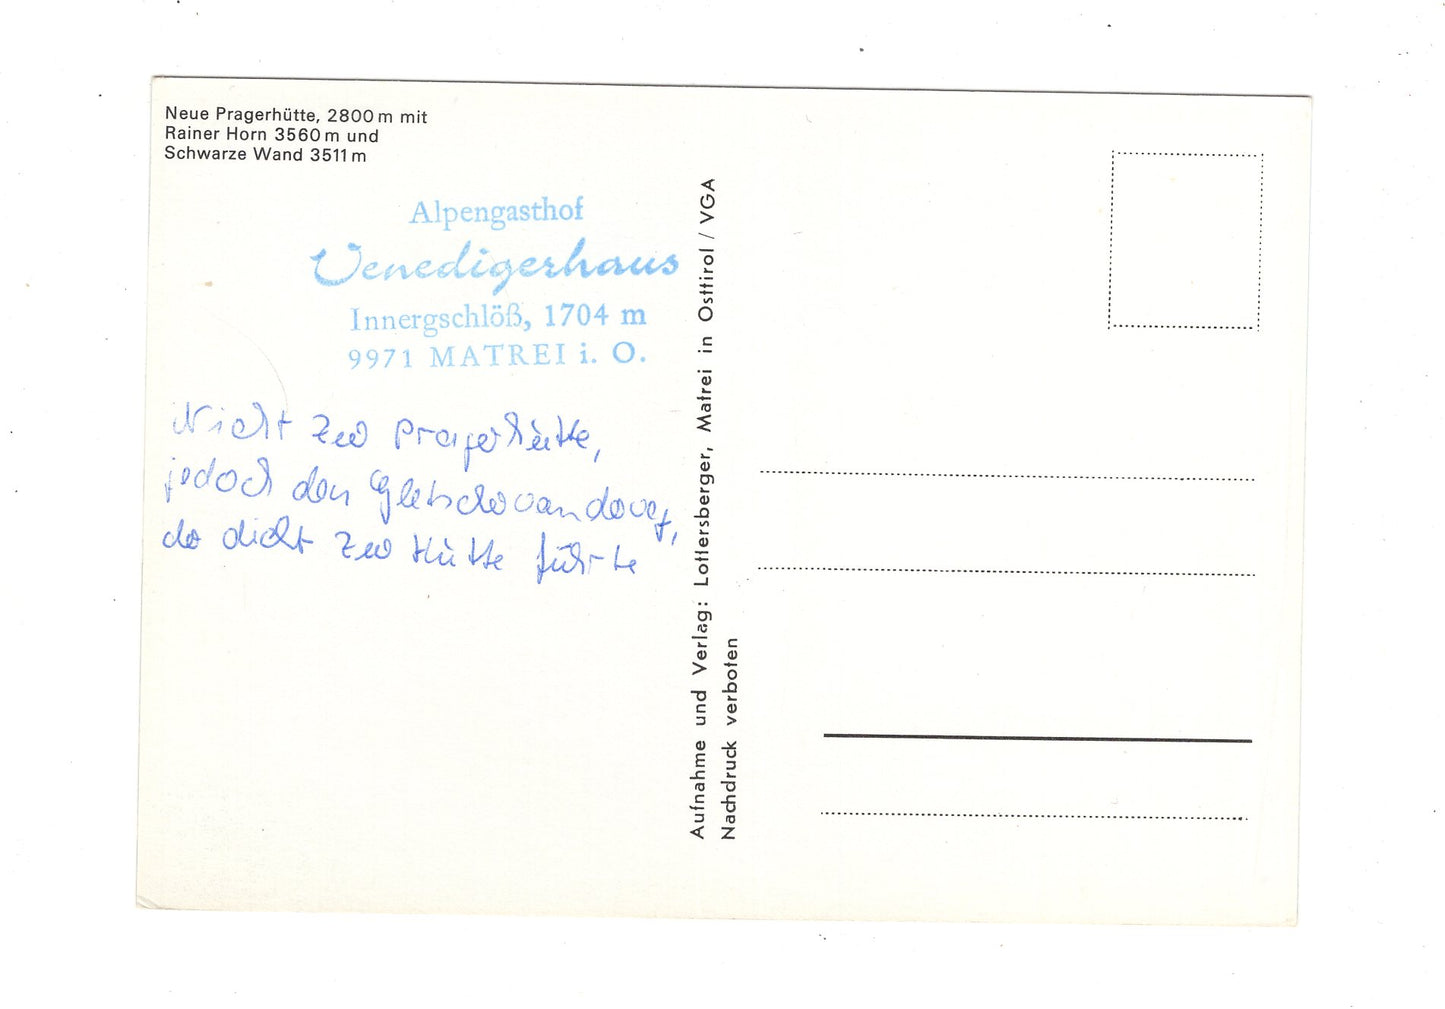 Neue Pragerhütte, 2800 m mit
Rainer Horn 3560 m und
Schwarze Wand 3511 m
Alpengasthof
Venedigerhaus
Innergschlöß, 1704 m
9971 MATREI i. O.
Nicht zur Pragerhütte,
jedoch den Gletscherwanderweg,
der dicht zur Hütte führte
Aufnahme und Verlag: Lottersberger, Matrei in Osttirol / VGA
Nachdruck verboten